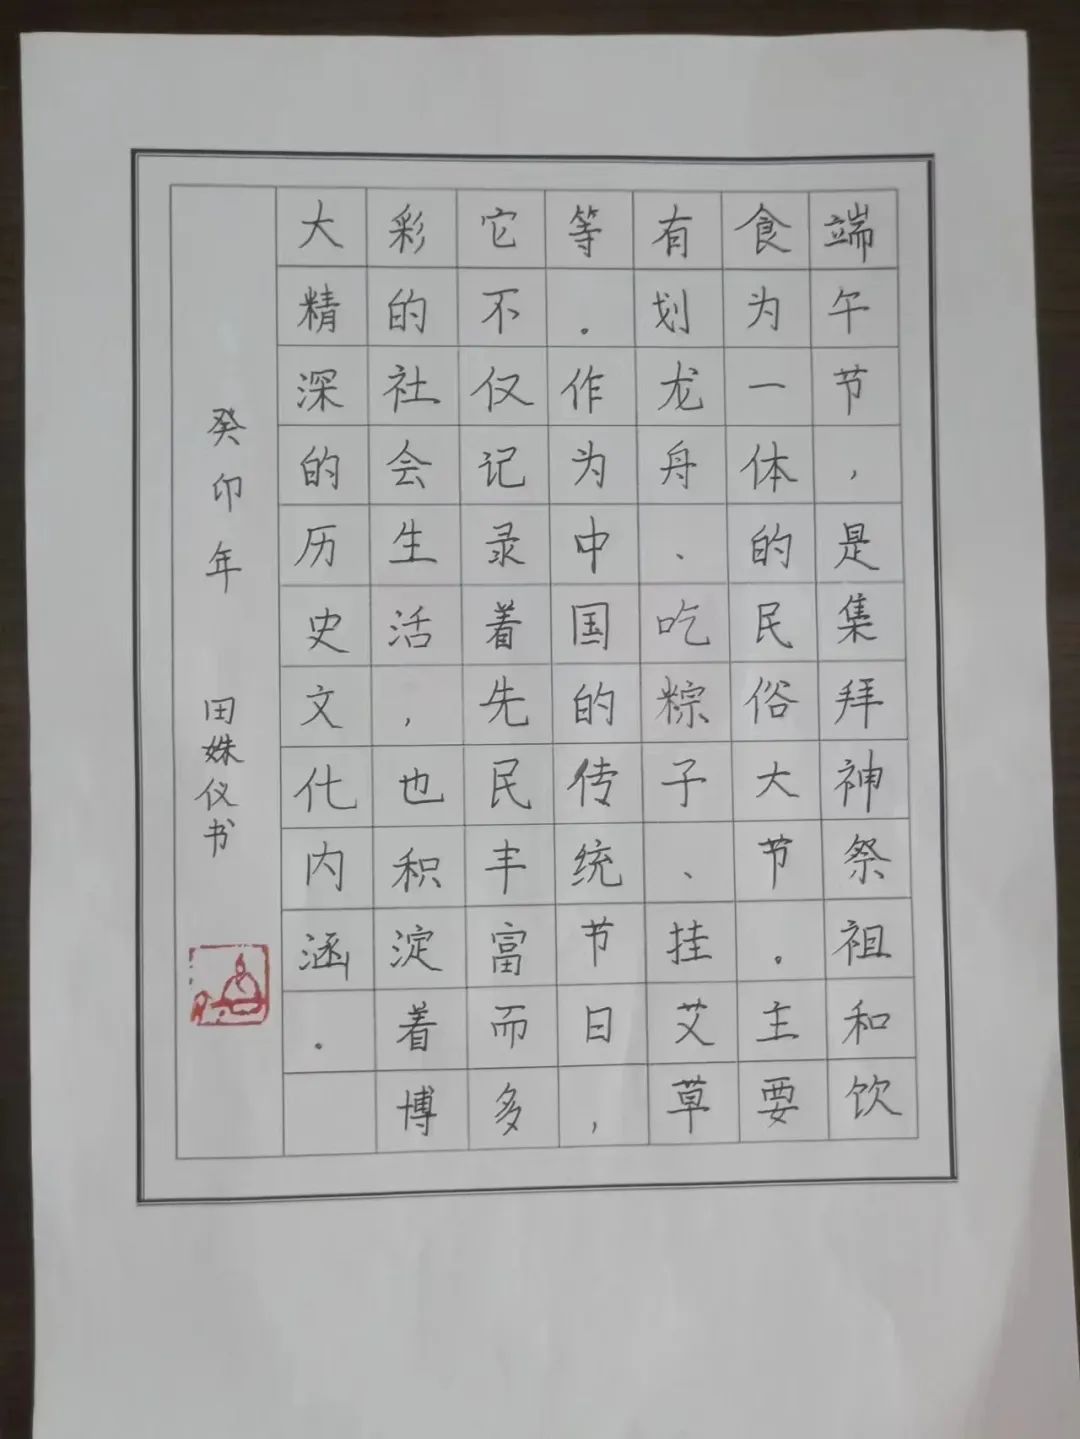 端午节，是集拜神祭祖和饮
食为一体的民俗大节。主要
有划龙舟、吃粽子、挂艾草
等。作为中国的传统节日，
它不仅记录着先民丰富而多
彩的社会生活，也积淀着博
大精深的历史文化内涵。
癸卯年 田姝仪书